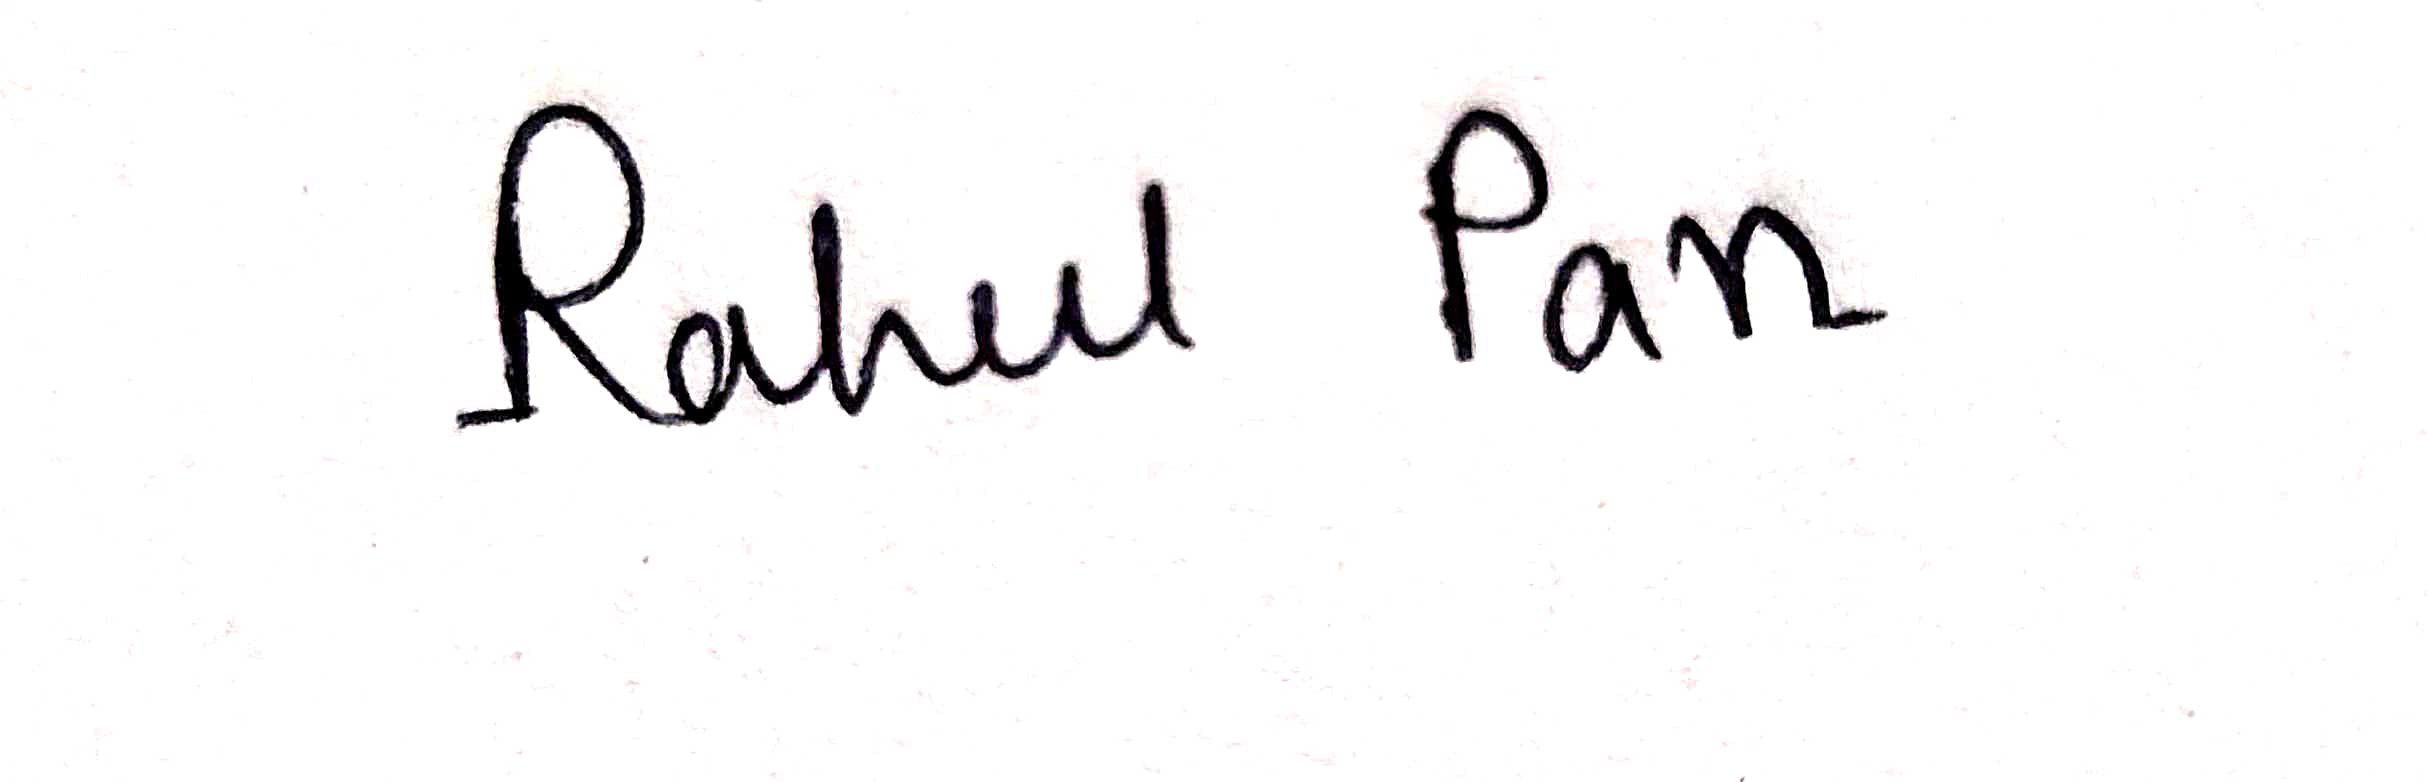 Rahul Pan